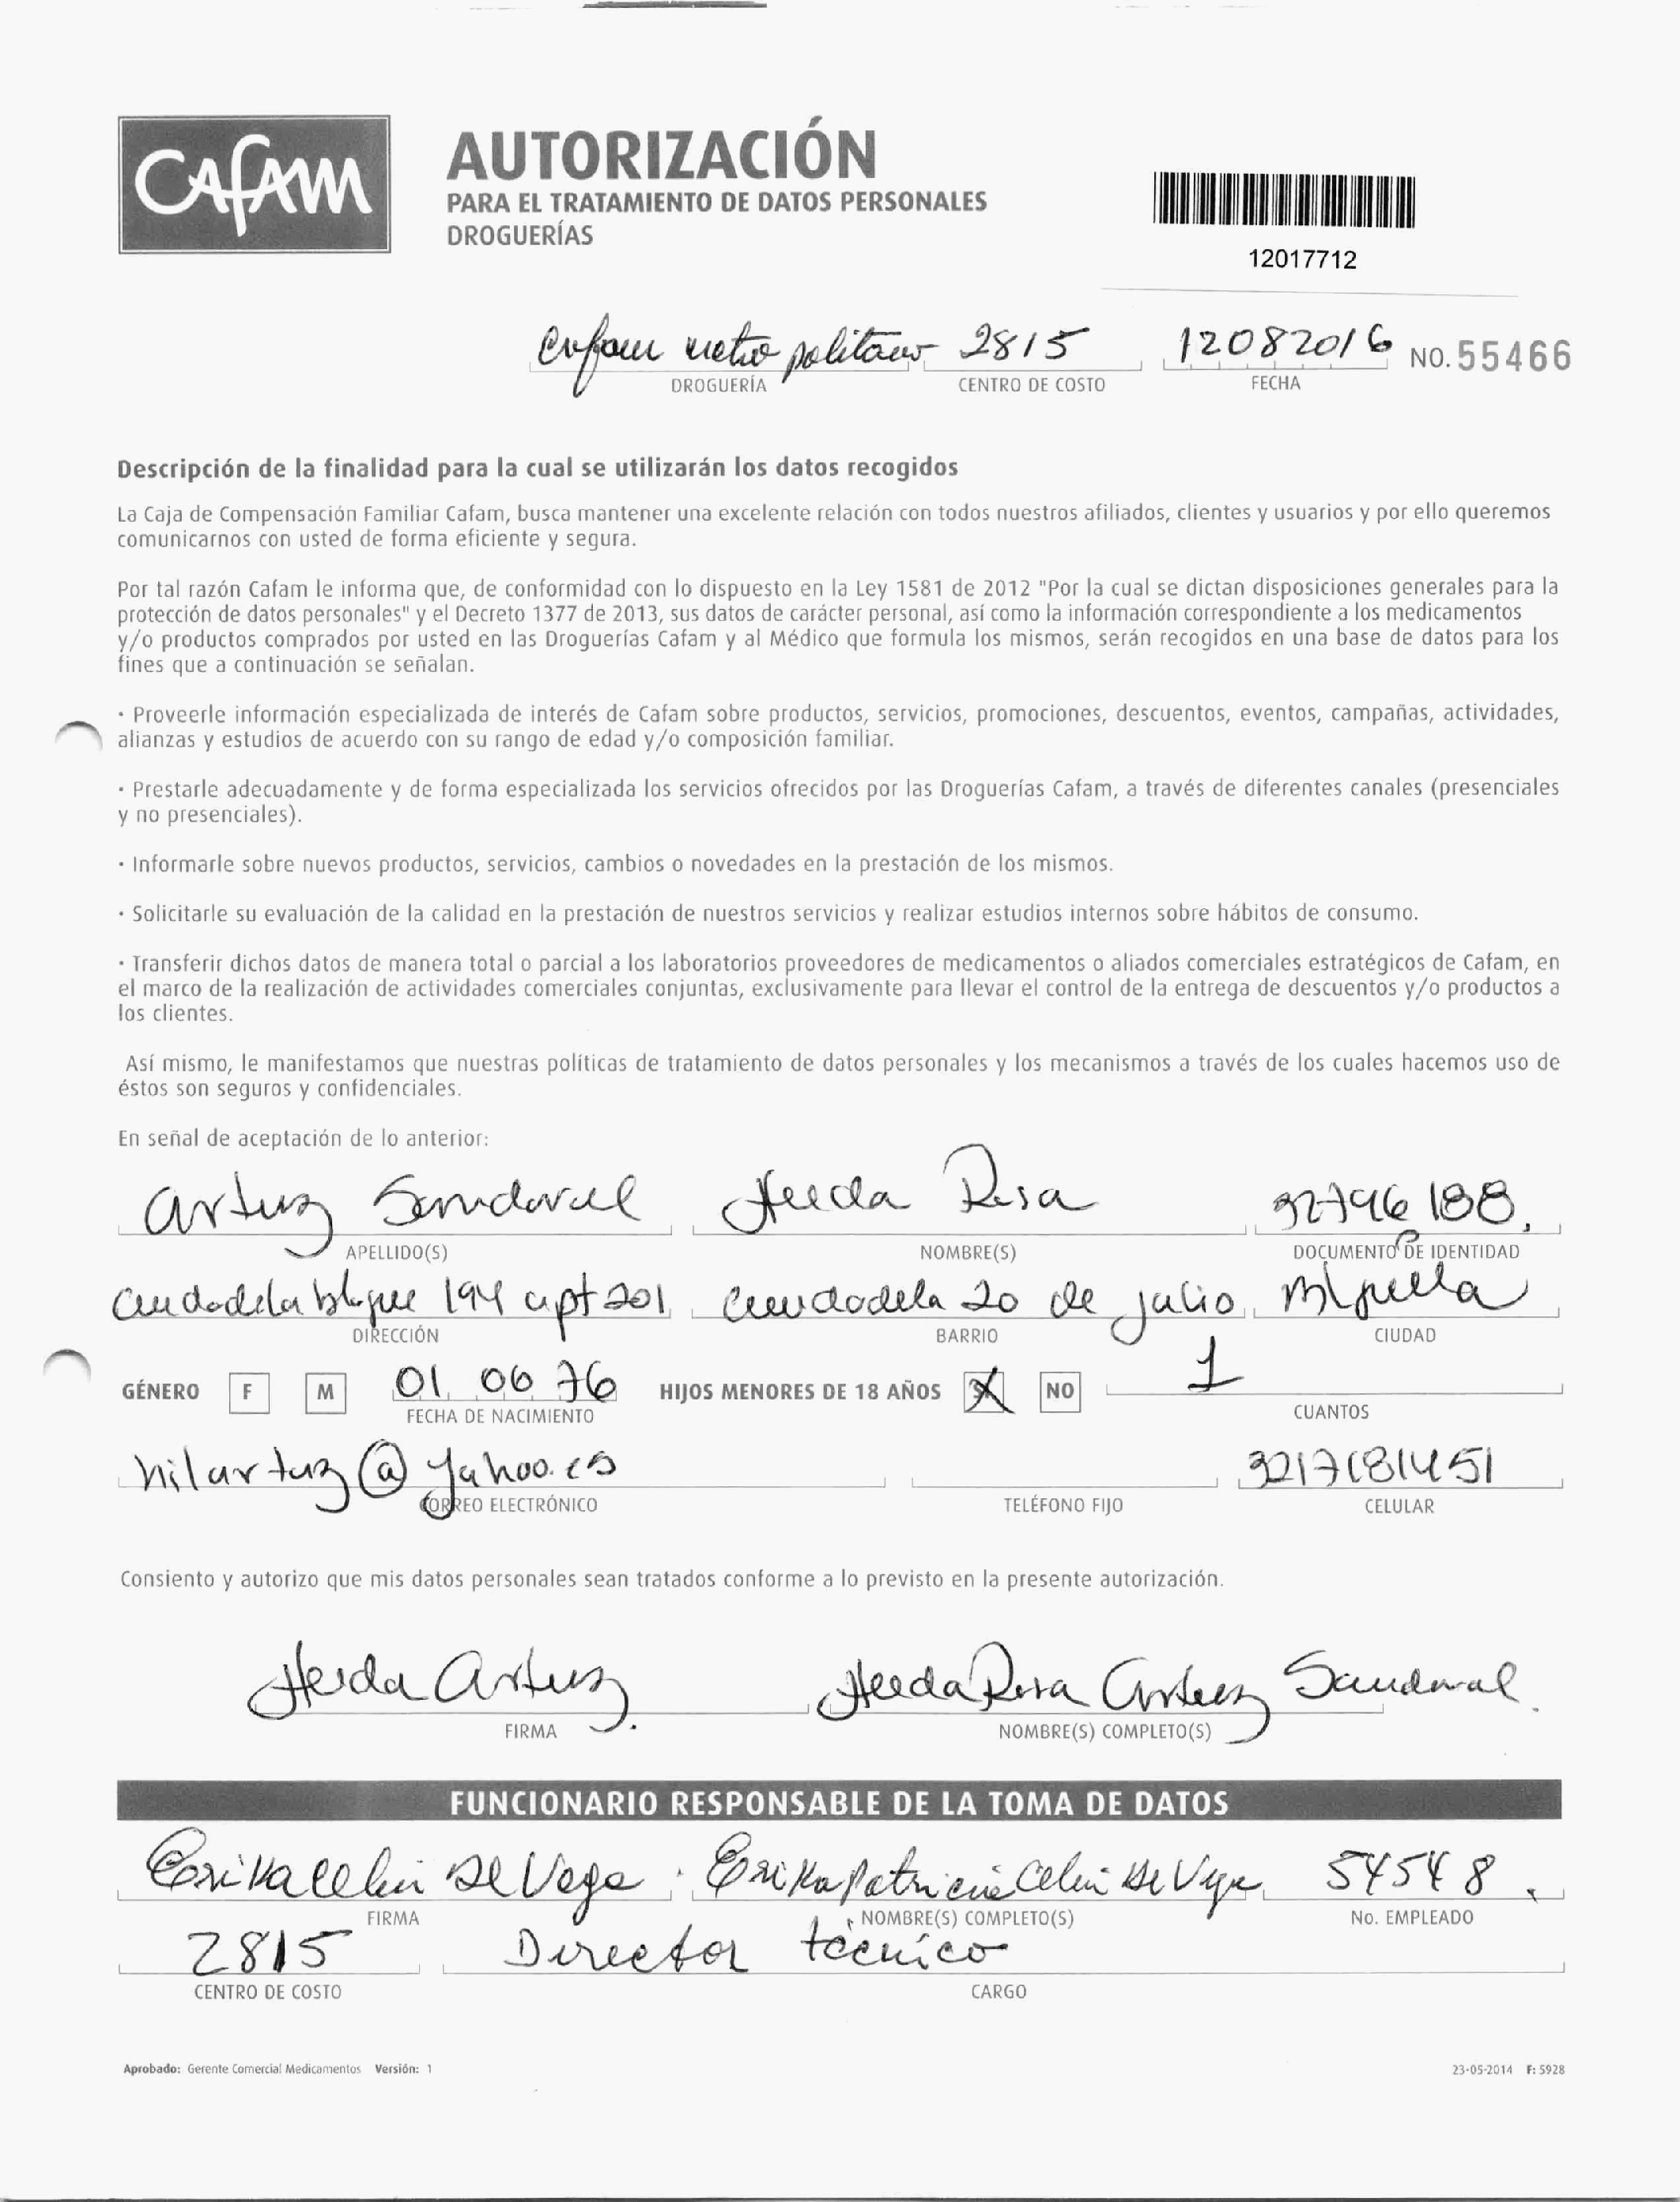 CAFAM
AUTORIZACIÓN
PARA EL TRATAMIENTO DE DATOS PERSONALES
DROGUERÍAS
12017712
metropolitano 2815 12082016 NO. 55466
DROGUERÍA CENTRO DE COSTO FECHA
Descripción de la finalidad para la cual se utilizarán los datos recogidos
La Caja de Compensación Familiar Cafam, busca mantener una excelente relación con todos nuestros afiliados, clientes y usuarios y por ello queremos
comunicarnos con usted de forma eficiente y segura.
Por tal razón Cafam le informa que, de conformidad con lo dispuesto en la Ley 1581 de 2012 "Por la cual se dictan disposiciones generales para la
protección de datos personales" y el Decreto 1377 de 2013, sus datos de carácter personal, así como la información correspondiente a los medicamentos
y/o productos comprados por usted en las Droguerías Cafam y al Médico que formula los mismos, serán recogidos en una base de datos para los
fines que a continuación se señalan.
· Proveerle información especializada de interés de Cafam sobre productos, servicios, promociones, descuentos, eventos, campañas, actividades,
alianzas y estudios de acuerdo con su rango de edad y/o composición familiar.
· Prestarle adecuadamente y de forma especializada los servicios ofrecidos por las Droguerías Cafam, a través de diferentes canales (presenciales
y no presenciales).
· Informarle sobre nuevos productos, servicios, cambios o novedades en la prestación de los mismos.
· Solicitarle su evaluación de la calidad en la prestación de nuestros servicios y realizar estudios internos sobre hábitos de consumo.
· Transferir dichos datos de manera total o parcial a los laboratorios proveedores de medicamentos o aliados comerciales estratégicos de Cafam, en
el marco de la realización de actividades comerciales conjuntas, exclusivamente para llevar el control de la entrega de descuentos y/o productos a
los clientes.
Así mismo, le manifestamos que nuestras políticas de tratamiento de datos personales y los mecanismos a través de los cuales hacemos uso de
éstos son seguros y confidenciales.
En señal de aceptación de lo anterior:
Artuz Sandoval Rosa 32796188
APELLIDO(S) NOMBRE(S) DOCUMENTO DE IDENTIDAD
Ciudadela bloque 194 apt 201 Ciudadela 20 de julio
DIRECCIÓN BARRIO CIUDAD
GÉNERO F M 01 06 76 HIJOS MENORES DE 18 AÑOS X NO 1
FECHA DE NACIMIENTO CUANTOS
hilartuz@yahoo.es 3217181451
CORREO ELECTRÓNICO TELÉFONO FIJO CELULAR
Consiento y autorizo que mis datos personales sean tratados conforme a lo previsto en la presente autorización.
Artuz Rosa Artuz Sandoval
FIRMA NOMBRE(S) COMPLETO(S)
FUNCIONARIO RESPONSABLE DE LA TOMA DE DATOS
Erika Celin De Vega Erika Patricia Celin De Vega 54548
FIRMA NOMBRE(S) COMPLETO(S) No. EMPLEADO
2815 Director técnico
CENTRO DE COSTO CARGO
Aprobado: Gerente Comercial Medicamentos Versión: 1 23-05-2014 F: 5928